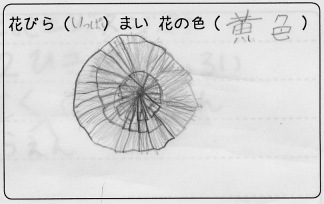 花びら（いっぱい）まい 花の色（黄色）